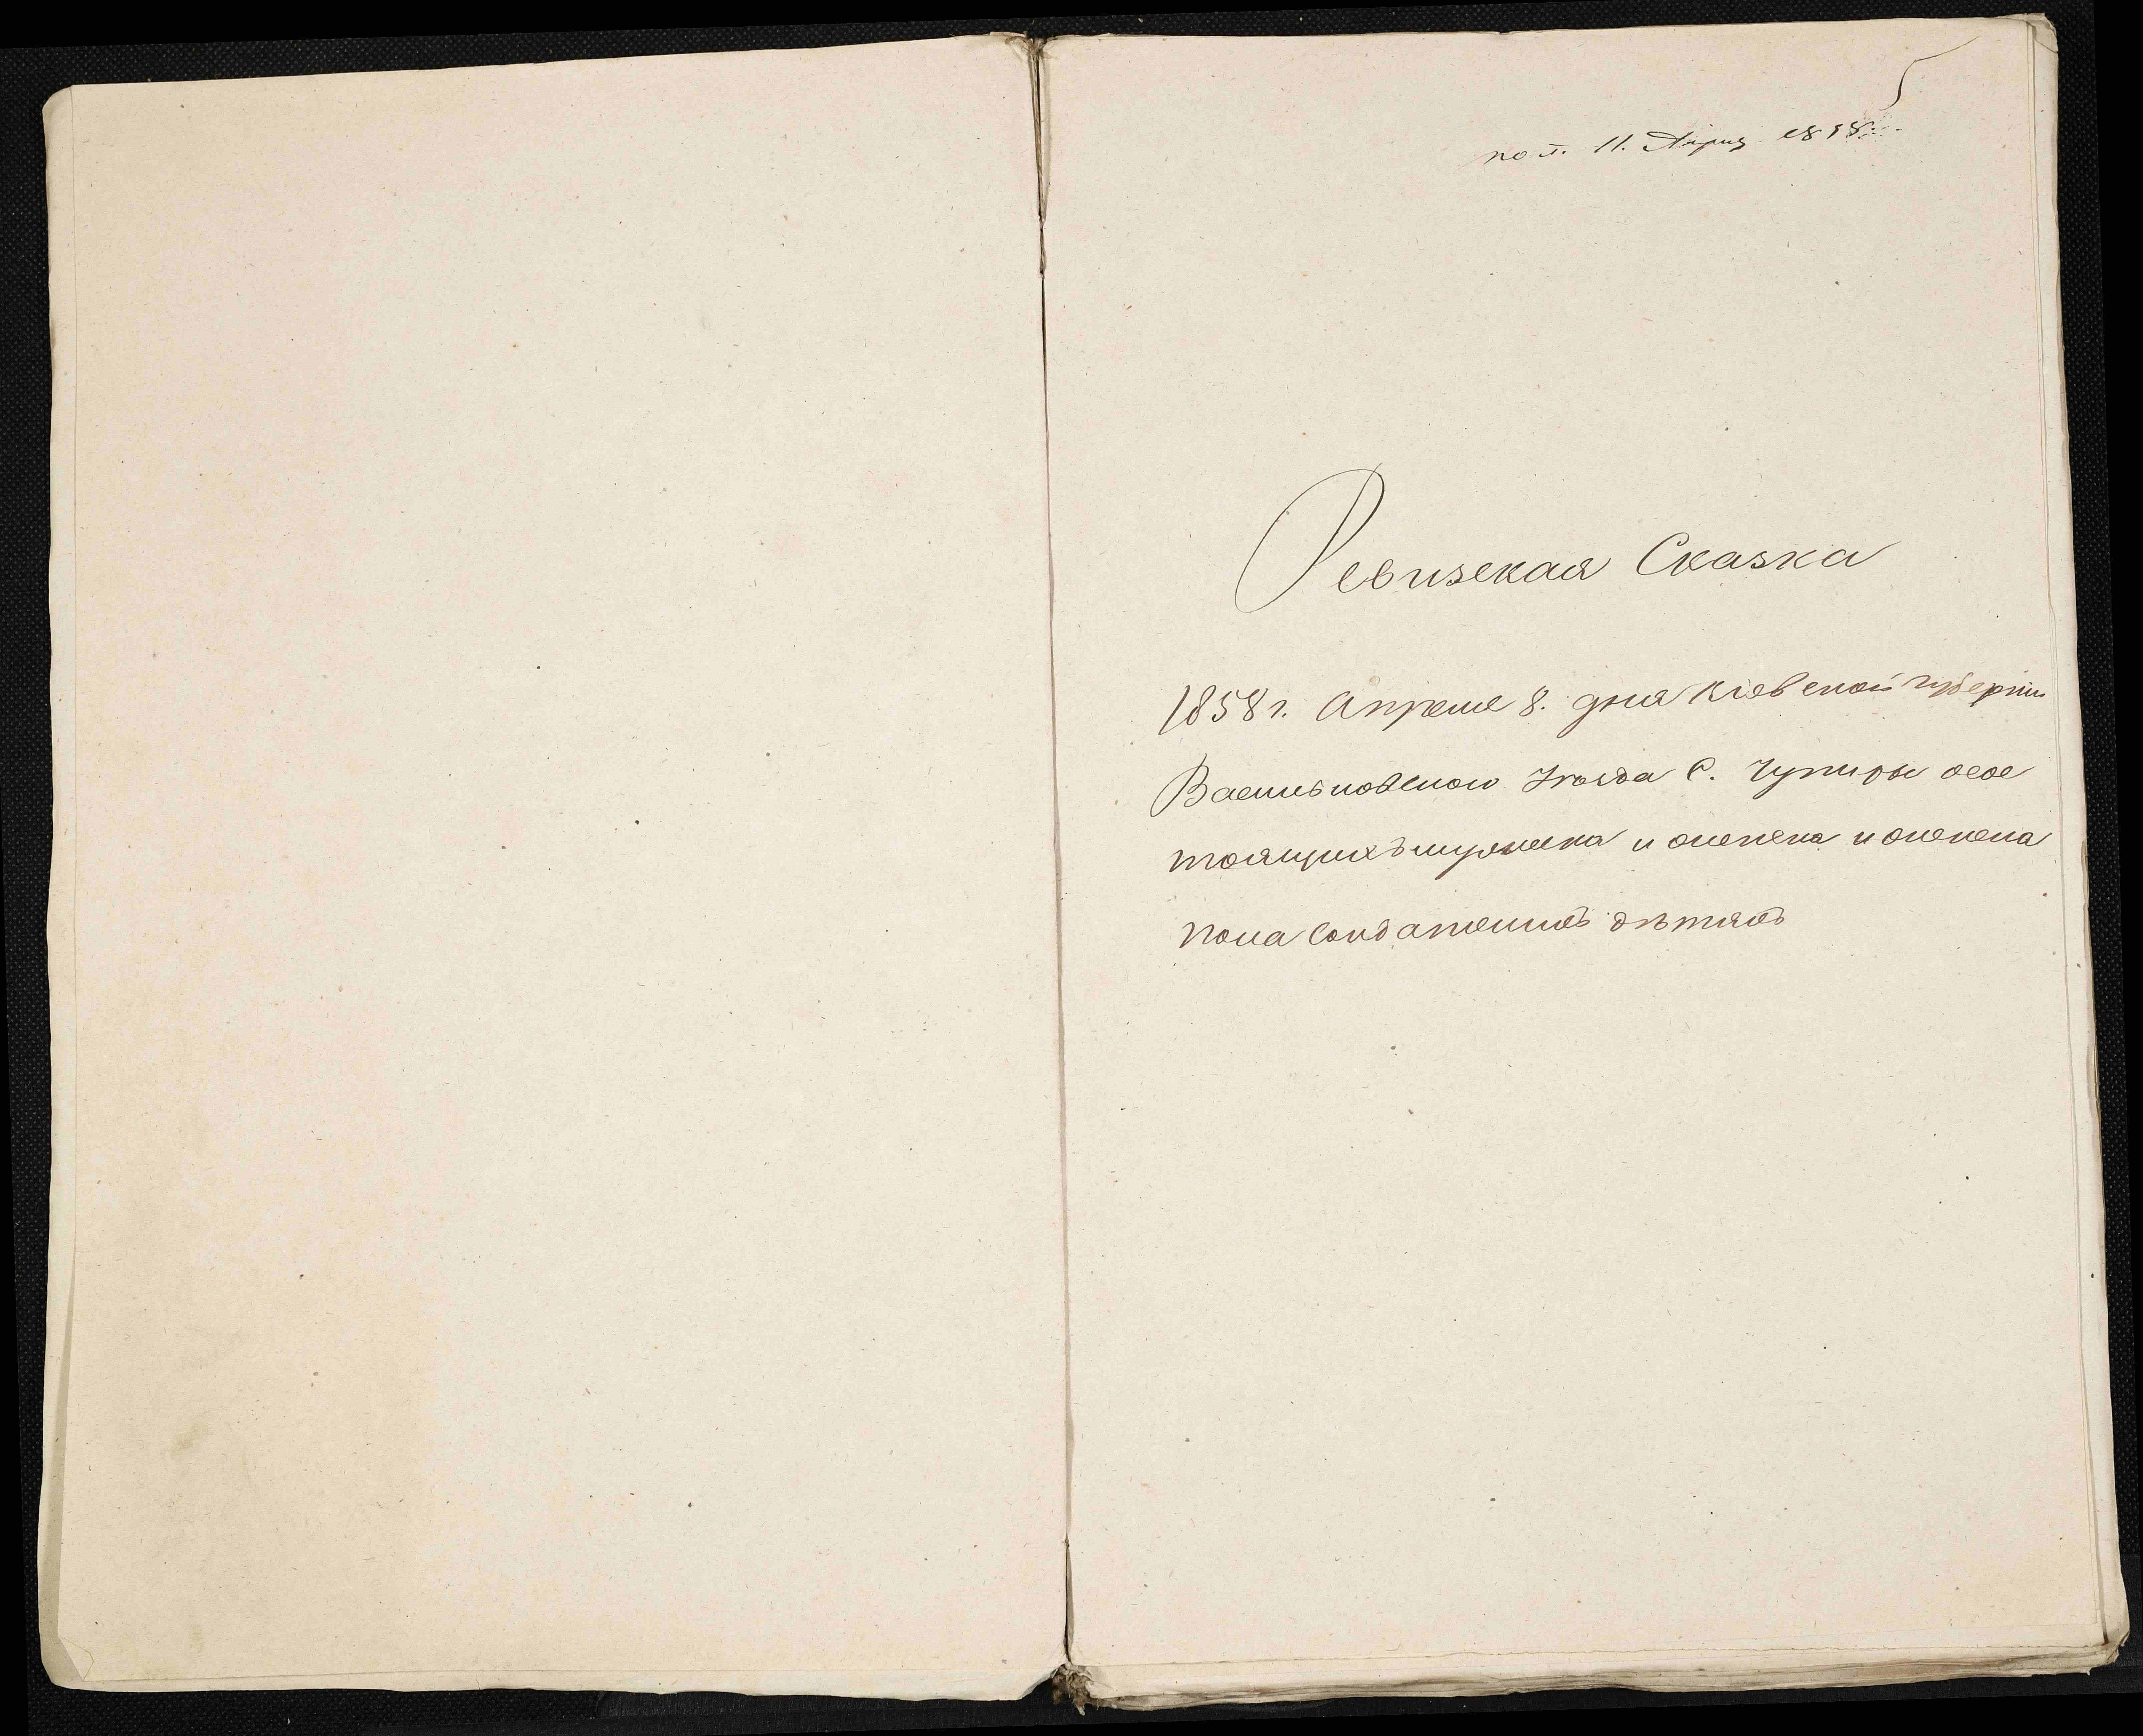 пол. 11. Апреля 1858
Ревизская Сказка
1858 г. Апреля 8. дня Кіевской губерніи
Васильковского Уезда С. Чупиры осос
тоящихъ мужеска и женска
пола Солдатскихъ дѣтяхъ